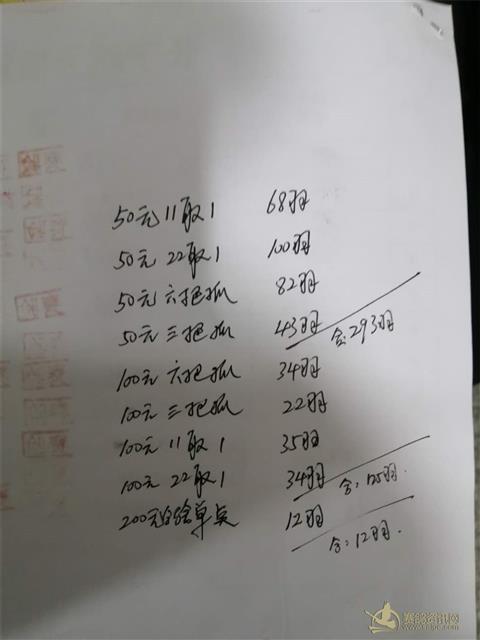 50元 11取1 68羽
50元 22取1 100羽
50元 六把抓 82羽
50元 三把抓 43羽 合:293羽
100元 六把抓 34羽
100元 三把抓 22羽
100元 11取1 35羽
100元 22取1 34羽 合:125羽.
200元 12羽 合:12羽.
赛鸽资讯网